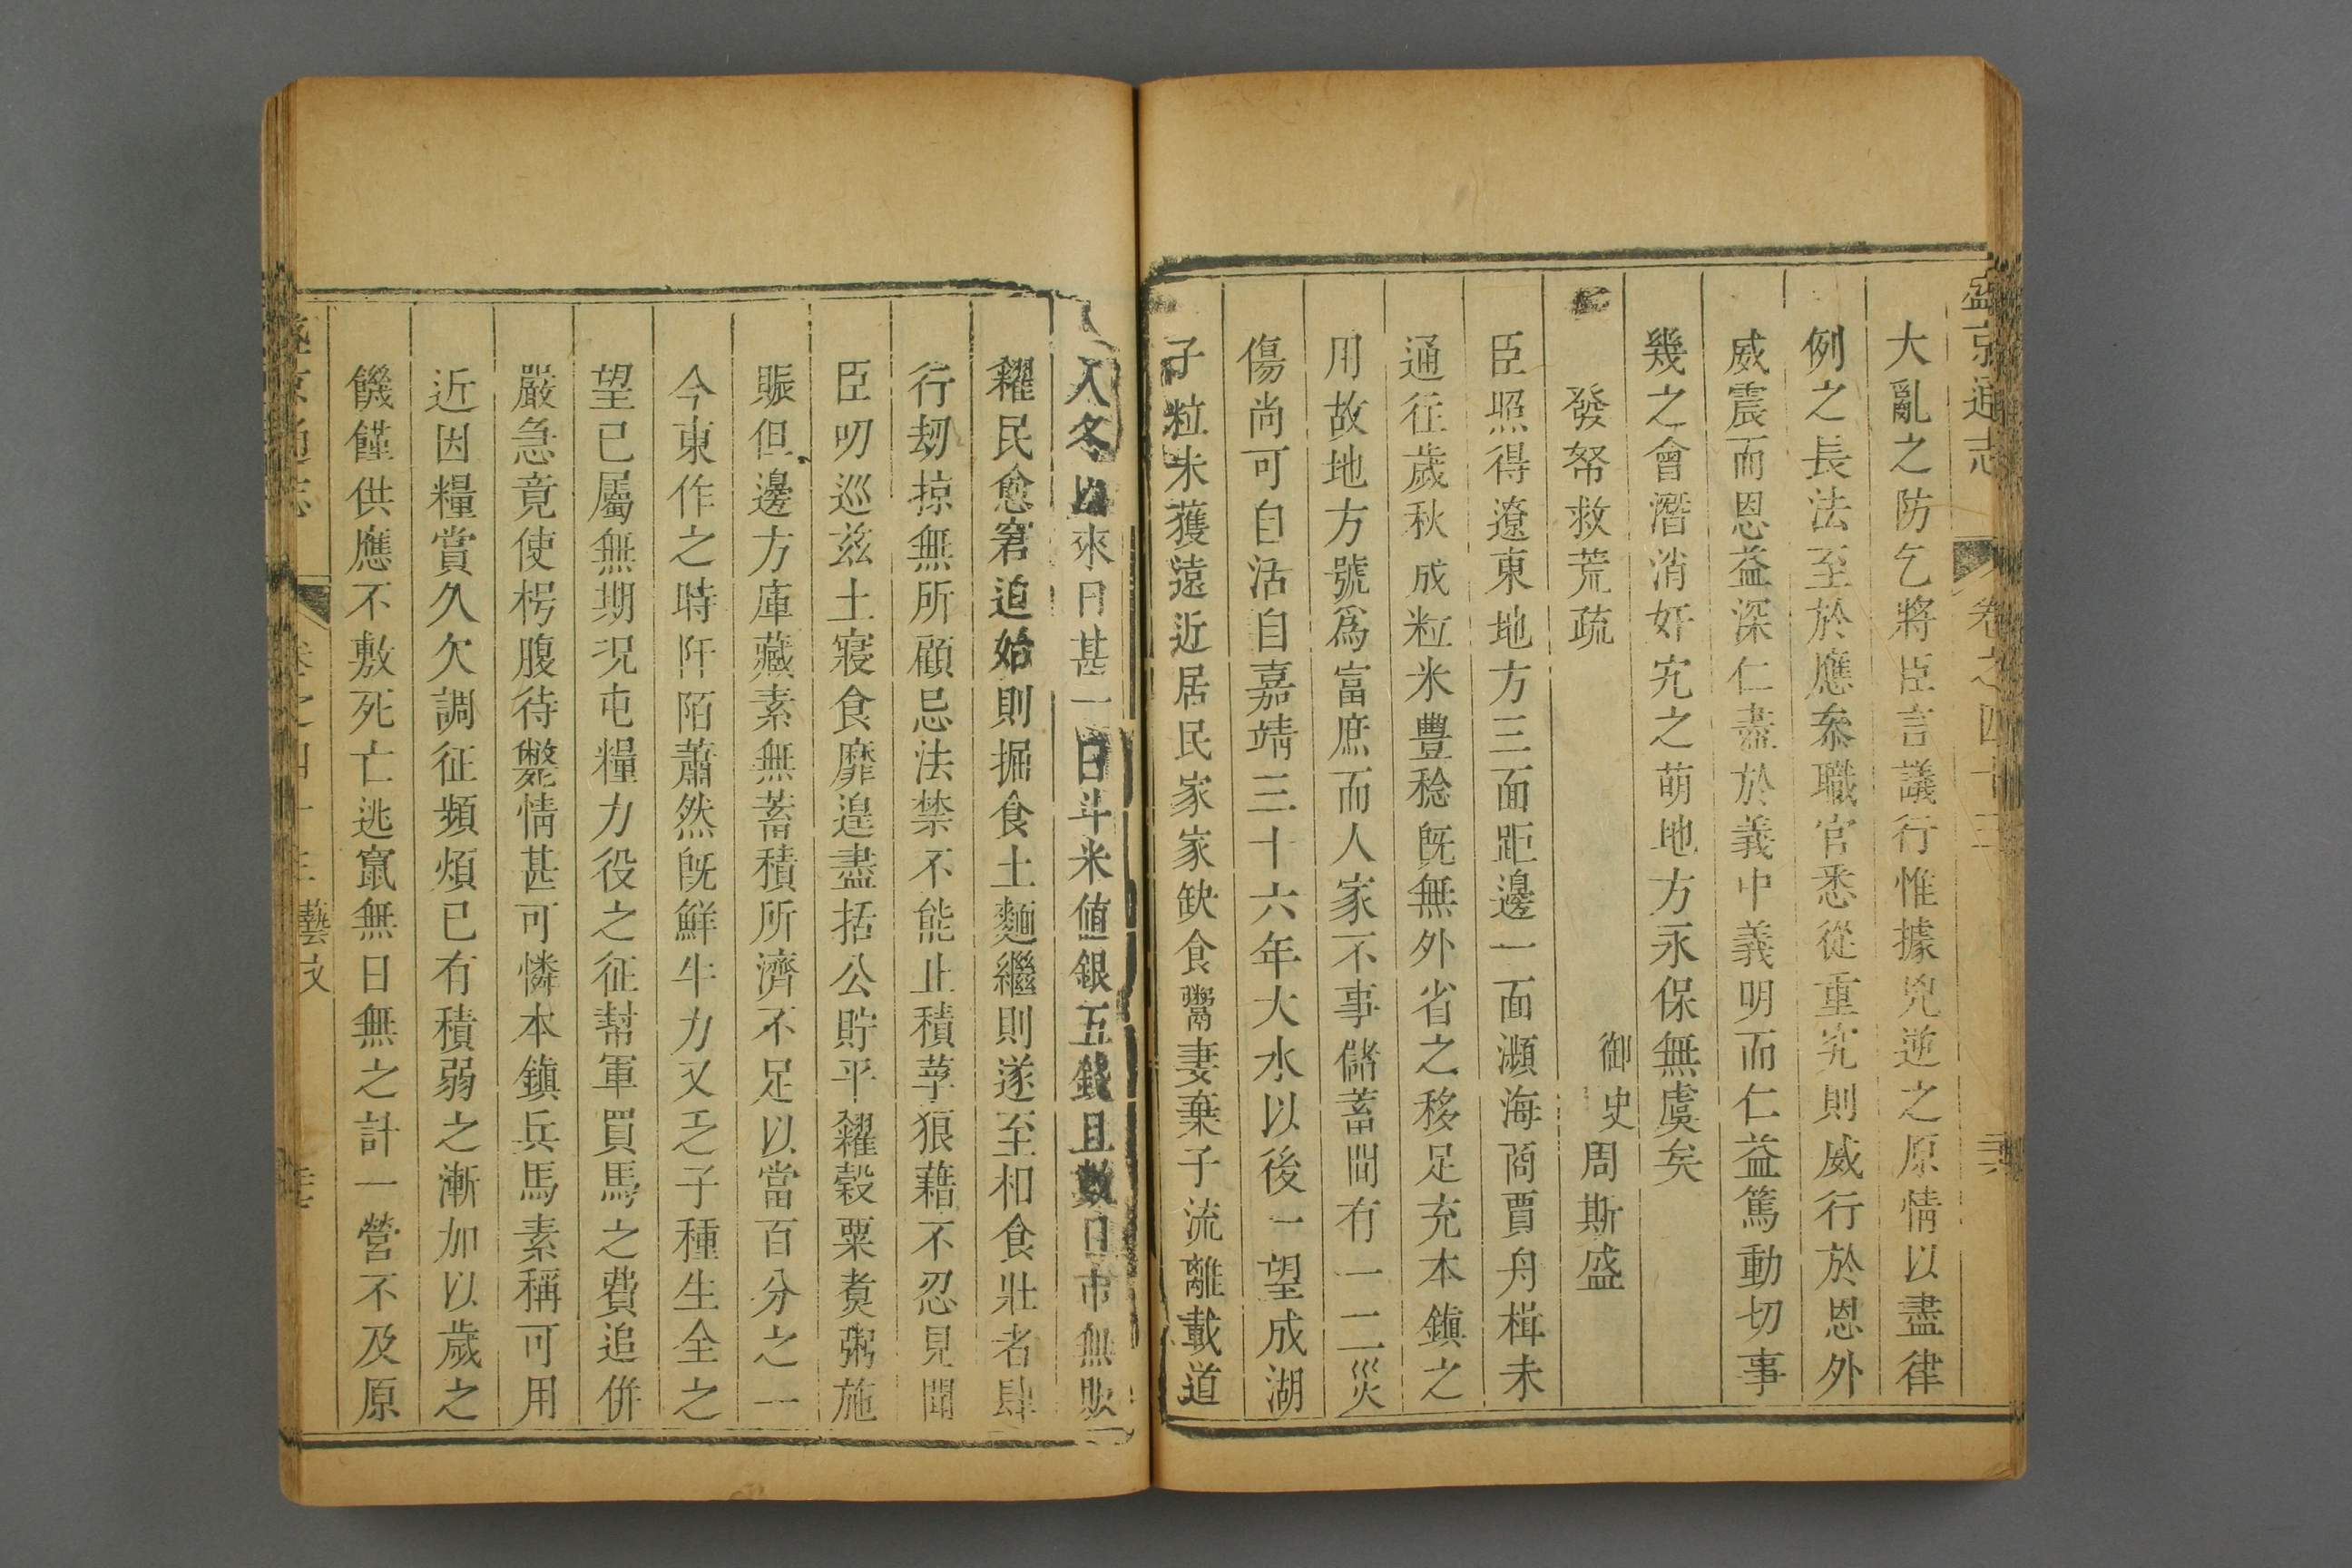 盛京通志 卷之四十三
大亂之防乞將臣言議行惟據兇逆之原情以盡律
例之長法至於應叅職官悉從重究則威行於恩外
威震而恩益深仁盡於義中義明而仁益篤動切事
幾之會潛消奸宄之萌地方永保無虞矣
發帑救荒疏
御史周斯盛
臣照得遼東地方三面距邊一面瀕海商賈舟楫未
通往歲秋成粒米豐稔旣無外省之移足充本鎮之
用故地方號爲富庶而人家不事儲蓄間有一二災
傷尚可自活自嘉靖三十六年大水以後一望成湖
子粒未獲遠近居民家家缺食鬻妻棄子流離載道
入冬以來日甚一日斗米值銀五錢且數日市無販
糴民愈窘迫始則掘食土麵繼則遂至相食壯者肆
行刼掠無所顧忌法禁不能止積莩狼藉不忍見聞
臣叨巡兹土寢食靡遑盡括公貯平糴穀粟煑粥施
賑但邊方庫藏素無蓄積所濟不足以當百分之一
今東作之時阡陌蕭然旣鮮牛力又乏子種生全之
望已屬無期况屯糧力役之征幇軍買馬之費追併
嚴急竟使枵腹待斃情甚可憐本鎮兵馬素稱可用
近因糧賞久欠調征頻煩已有積弱之漸加以歲之
饑饉供應不敷死亡逃竄無日無之計一營不及原
京通志 卷之四十三 藝文